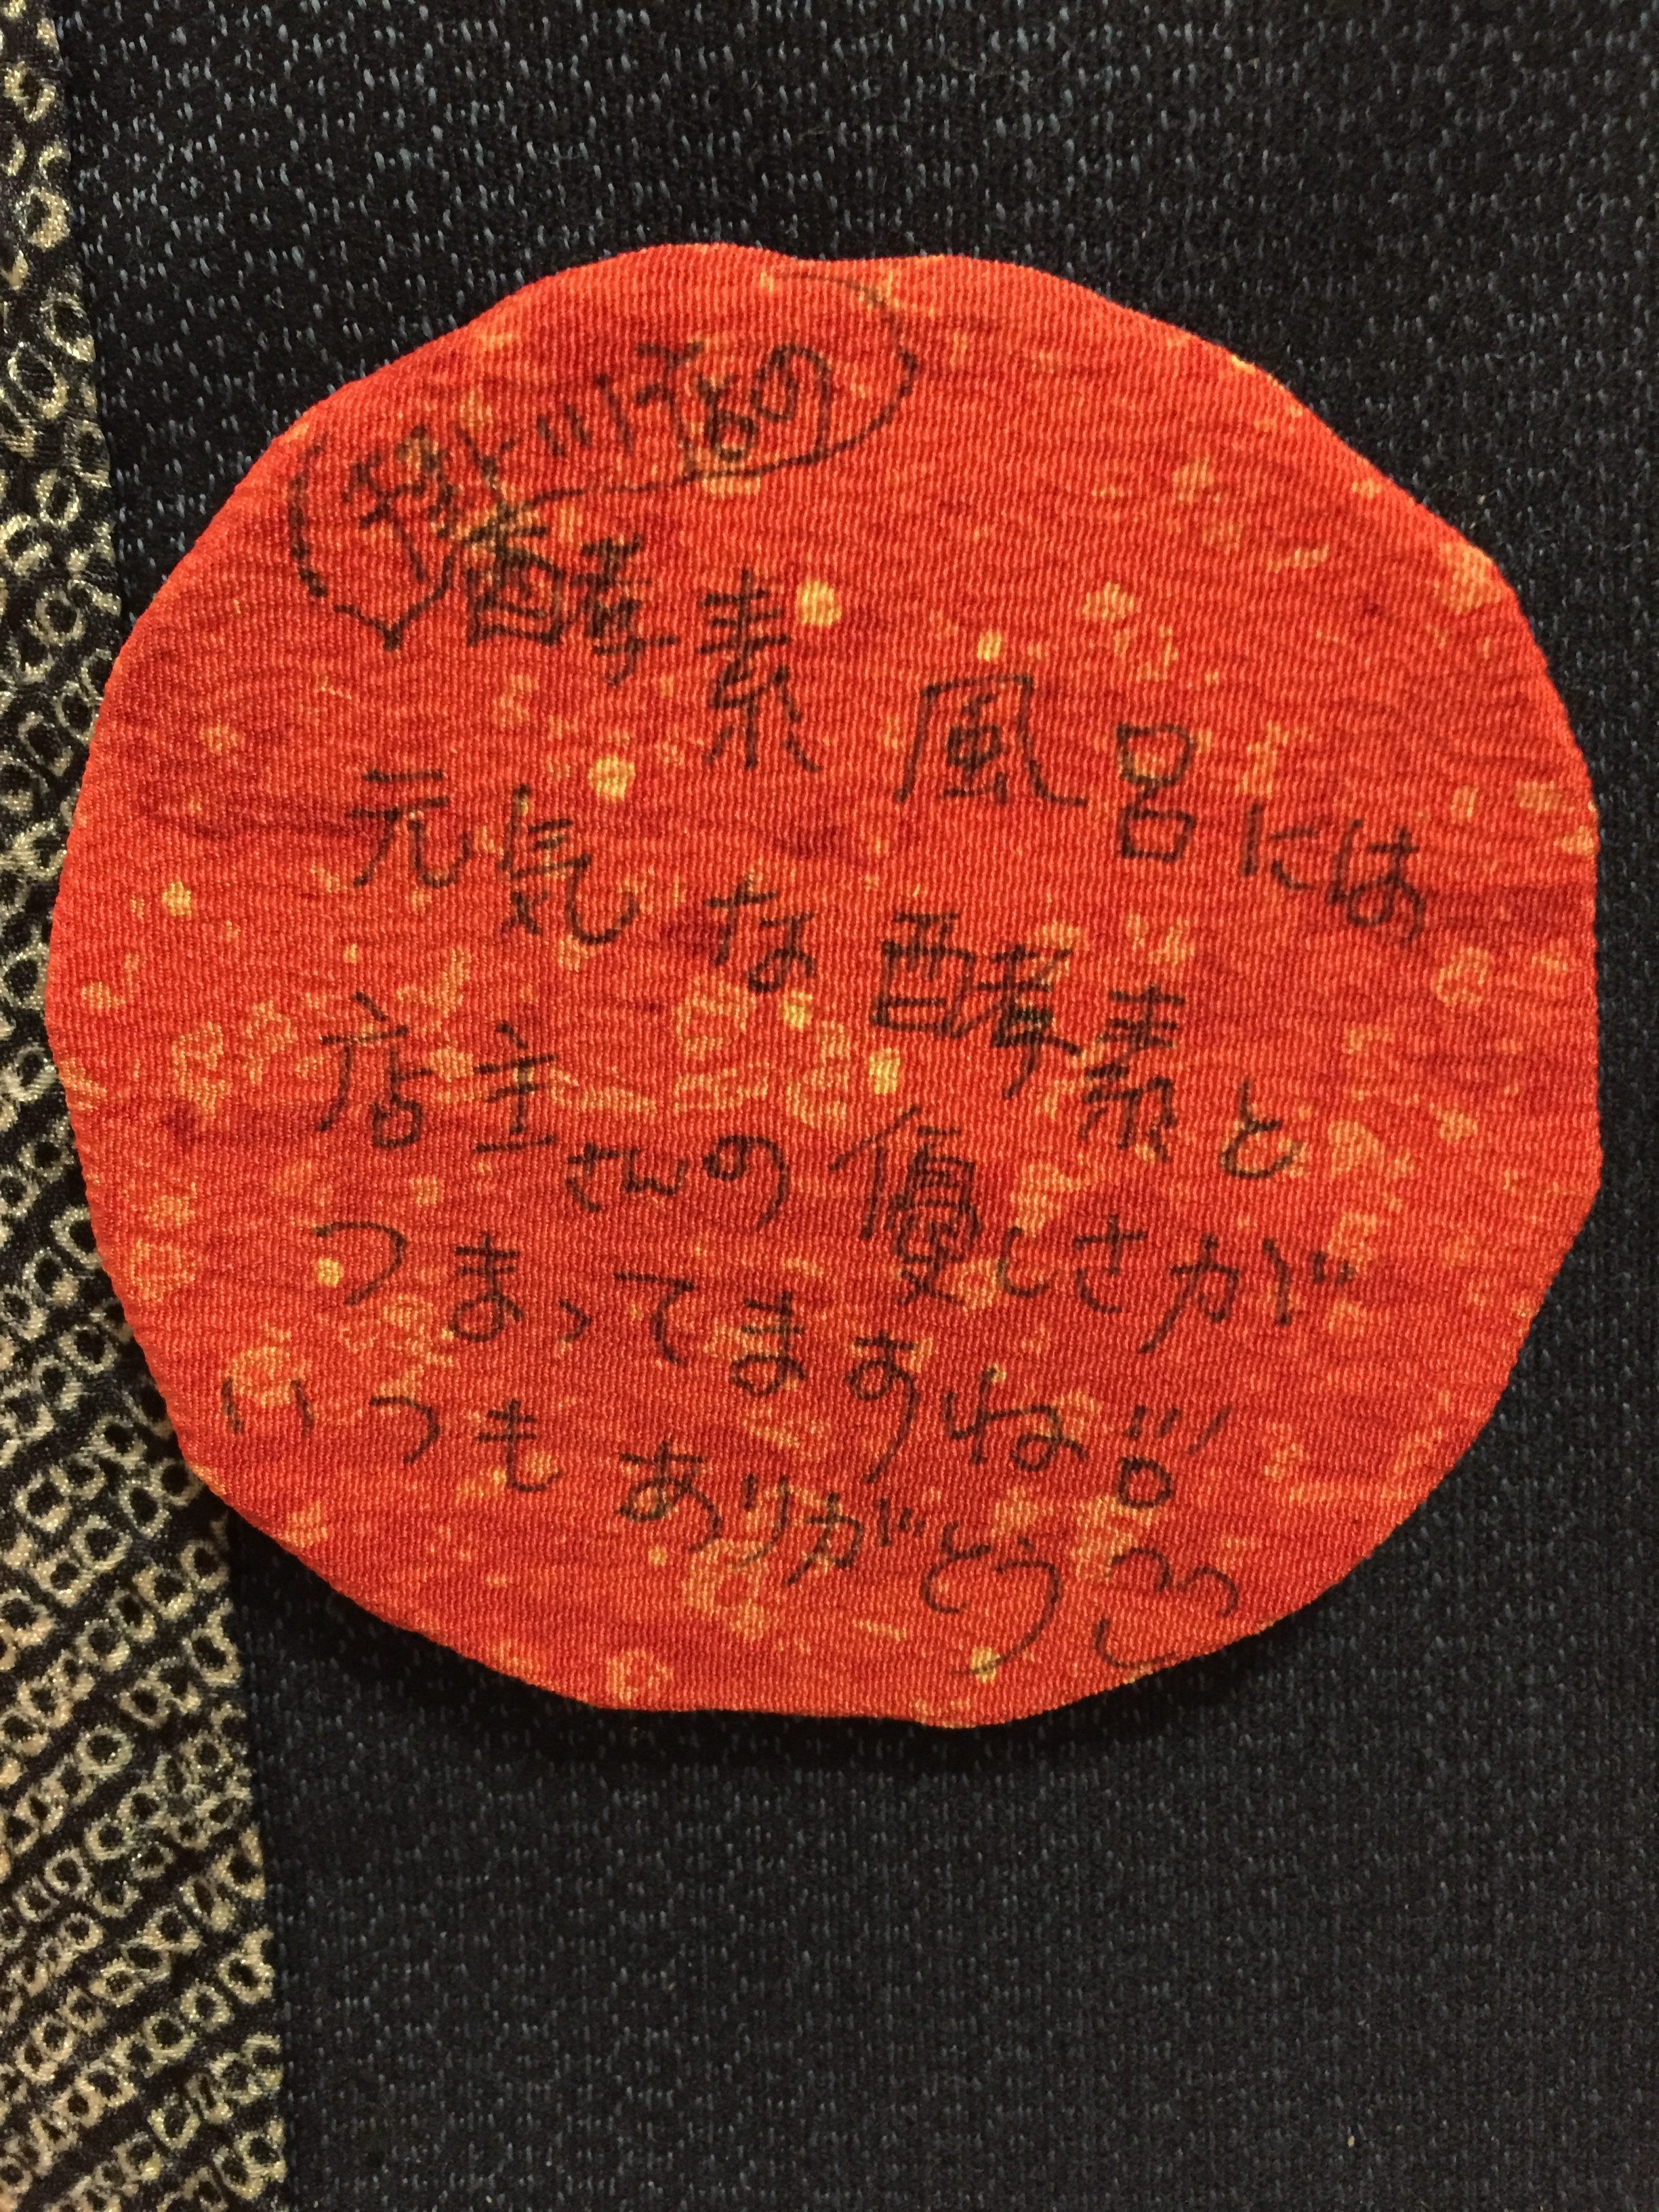 酵素風呂には
元気な酵素と
店主さんの優しさが
つまってますね!!!
いつもありがとう